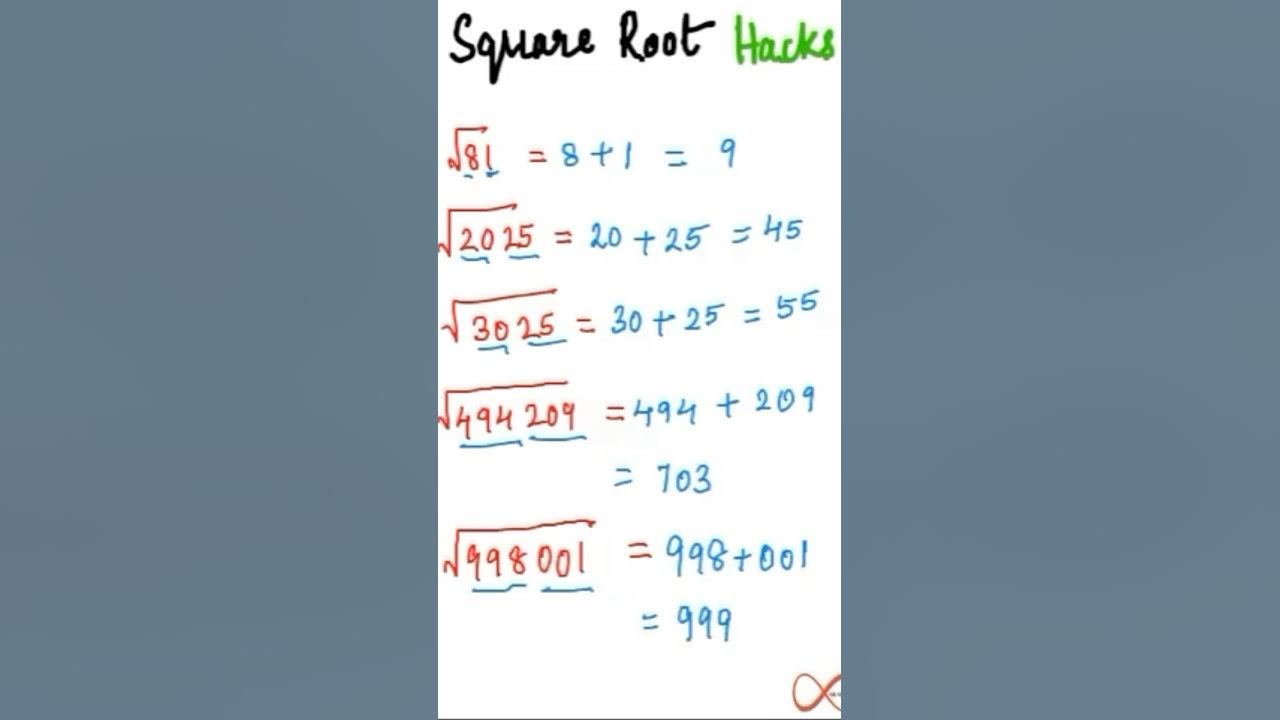 Square Root Hacks
√81 = 8+1 = 9
√2025 = 20+25 = 45
√3025 = 30+25 = 55
√494209 = 494 + 209
= 703
√998001 = 998+001
= 999